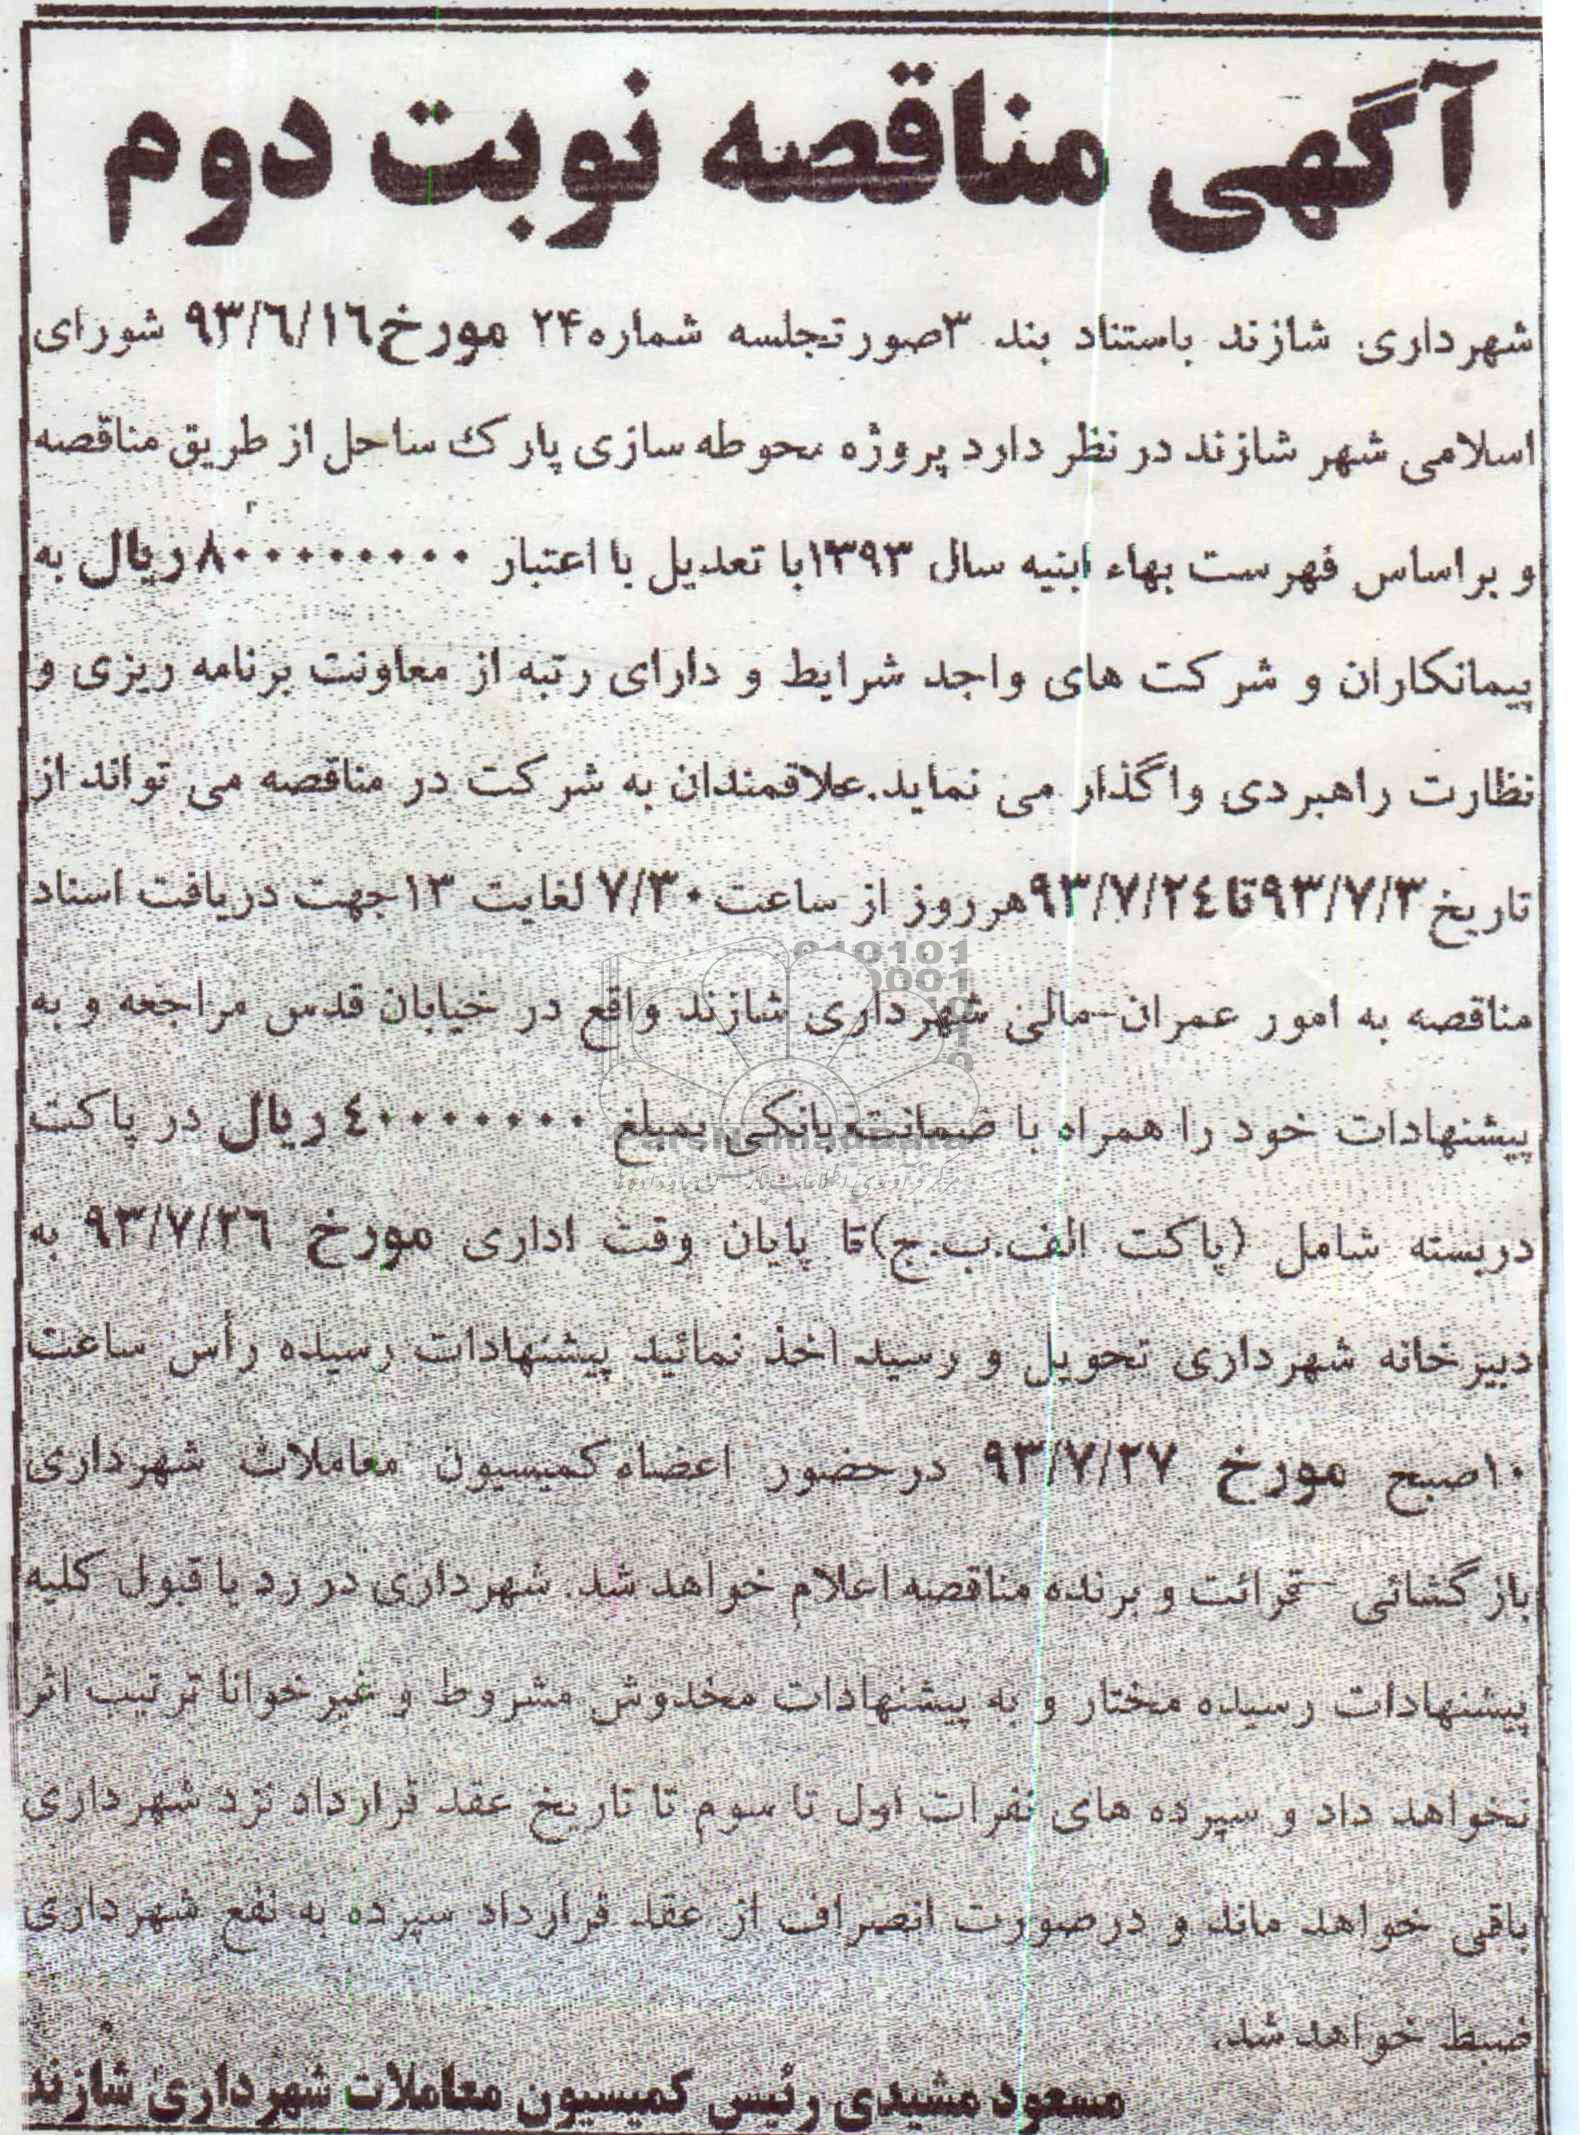 آگهی مناقصه نوبت دوم
شهرداری شازند باستناد بند ۳صورتجلسه شماره۲۴ مورخ۹۳/۶/۱۶ شورای
اسلامی شهر شازند در نظر دارد پروژه محوطه سازی پارک ساحل از طریق مناقصه
و براساس فهرست بهاء ابنیه سال ۱۳۹۳با تعدیل با اعتبار ۸۰۰۰۰۰۰۰۰۰ریال به
پیمانکاران و شرکت های واجد شرایط و دارای رتبه از معاونت برنامه ریزی و
نظارت راهبردی واگذار می نماید.علاقمندان به شرکت در مناقصه می تواند از
تاریخ ۹۳/۷/۳تا۹۳/۷/۲۴هرروز از ساعت ۷/۳۰ لغایت ۱۳جهت دریافت اسناد
مناقصه به امور عمران-مالی شهرداری شازند واقع در خیابان قدس مراجعه و به
پیشنهادات خود را همراه با ضمانت بانکی بمبلغ ۴۰۰۰۰۰۰۰۰ریال در پاکت
دربسته شامل (پاکت الف.ب.ج)تا پایان وقت اداری مورخ ۹۳/۷/۲۶ به
دبیرخانه شهرداری تحویل و رسید اخذ نمائید پیشنهادات رسیده رأس ساعت
۱۰صبح مورخ ۹۳/۷/۲۷ درحضور اعضاء کمیسیون معاملات شهرداری
بازگشائی - قرائت و برنده مناقصه اعلام خواهد شد. شهرداری در رد یا قبول کلیه
پیشنهادات رسیده مختار و به پیشنهادات مخدوش مشروط و غیرخوانا ترتیب اثر
نخواهد داد و سپرده های نفرات اول تا سوم تا تاریخ عقد قرارداد نزد شهرداری
باقی خواهد ماند و درصورت انصراف از عقد قرارداد سپرده به نفع شهرداری
ضبط خواهد شد.
مسعود مشیدی رئیس کمیسیون معاملات شهرداری شازند